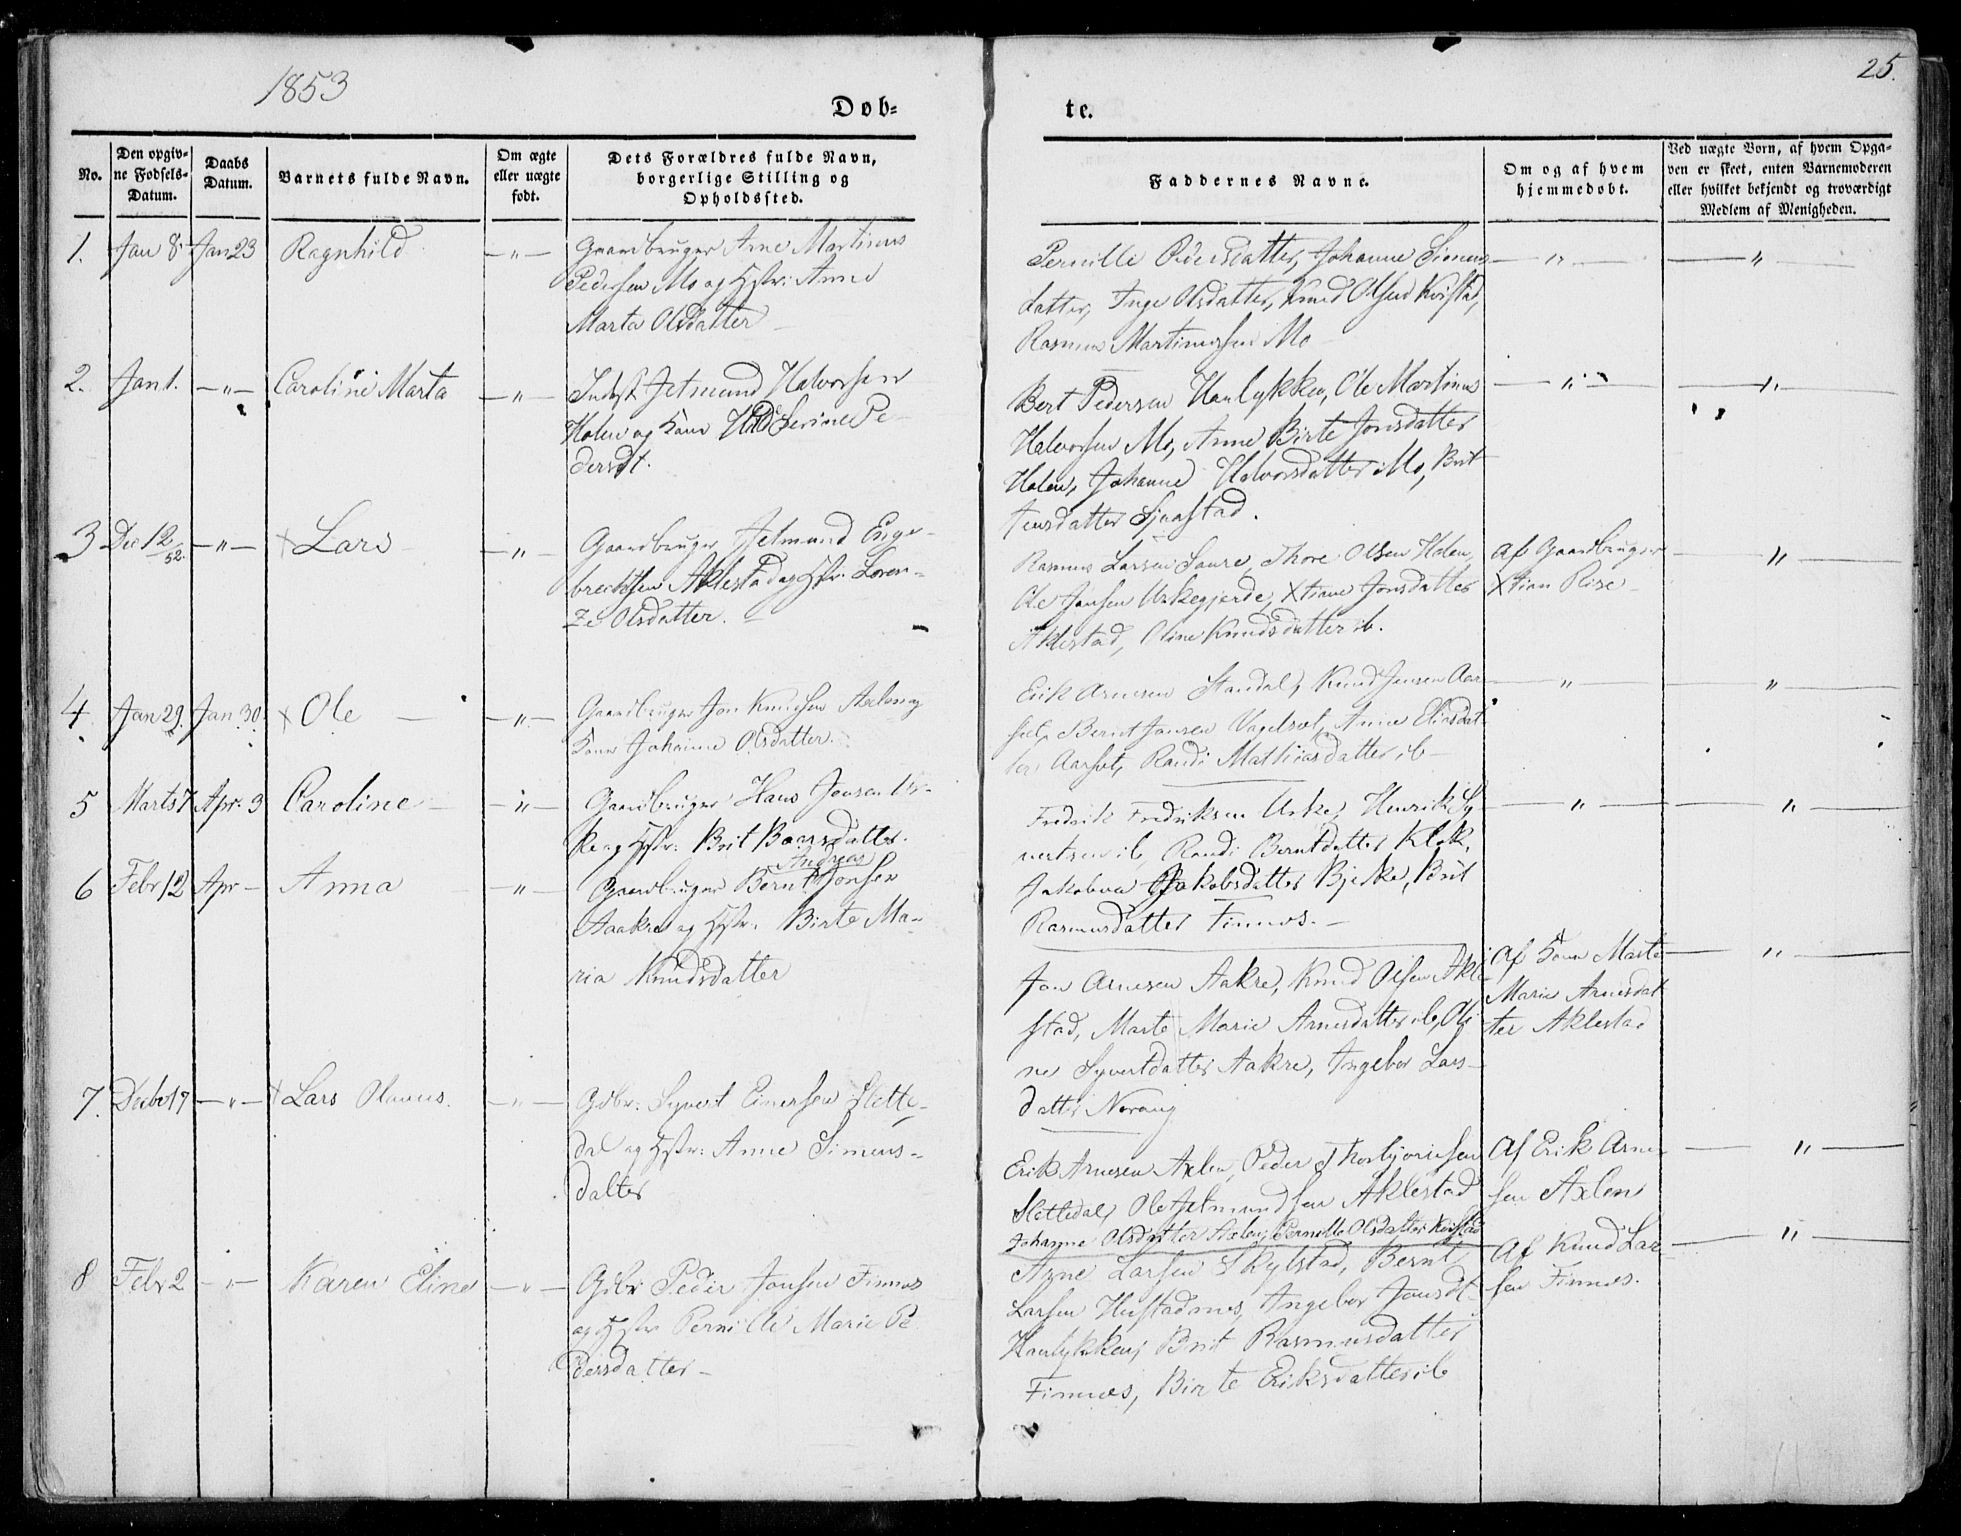 1853
25.
Døb-
te.
No.
Den opgiv-
ne Fødsels-
Datum.
Daabs
Datum.
Barnets fulde Navn.
Om ægte
eller uægte
født.
Dets Forældres fulde Navn,
borgerlige Stilling og
Opholdssted.
Faddernes Navne.
Om og af hvem
hjemmedøbt.
Ved uægte Børn, af hvem Opga-
ven er skeet, enten Barnemoderen
eller hvilket bekjendt og troværdigt
Medlem af Menigheden.
1. Jan 8. Jan 23 Ragnhild — " —
Gaardbruger Arne Martinus
Pedersen Mo og Hstr: Anne
Marta Olsdatter
Pernille Pedersdatter, Johanne Simens — " — — " —
datter, Inge Olsdatter, Knud Olsen Kvistad,
Rasmus Martinussen Mo
2. Jan 1. — " — Caroline Marta — " —
Inderst Jetmund Halvorsen
Holen og Kone Serine Pe-
dersdt.
Bert Pedersen Haulykken, Ole Martinus — " — — " —
Halvorsen Mo, Anne Birte Jonsdatter
Holen, Johanne Halvorsdatter Mo, Brit
Jensdatter
3 Dec 12/52. — " — + Lars — " —
Gaardbruger Jetmund Enge-
brechtsen Aklestad og Hstr. Loren-
ze Olsdatter.
Rasmus Larsen Saure, Thore Olsen Holen,
Ole Jansen Urkegjerde, Xtiane Jonsdatter
Aklestad, Oline Knudsdatter ib.
Af Gaardbruger — " —
Xtian Rise
4. Jan 29. Jan 30. + Ole — — " —
Gaardbruger Jon Knudsen Axlen og
Kone Johanne Olsdatter.
Erik Arnesen Standal, Knud Jensen Aar- — " — — " —
set, Bernt Jansen, Anne Eliasdat-
ter Aarset, Randi Mathiasdatter ib
5 Marts 7 Apr. 3 Caroline — — " —
Gaardbruger Hans Jonsen Ur-
ke og Hstr: Brit Baarsdatter.
Fredrik Fredriksen Urke, Henrik Sy- — " — — " —
vertsen ib, Randi Berntdatter Klok,
Jakobine Jakobsdatter Bjerke, Brit
Rasmusdatter Finnes. —
6 Febr 12 Apr — Anna — " —
Andreas
Gaardbruger Bernt Jonsen
Aakre og Hstr. Birte Ma-
ria Knudsdatter
Jon Arnesen Aakre, Knud Olsen Akle-
stad, Marte Marie Arnesdatter ib, Oli
ne Syvertdatter Aakre, Ingebor Lars-
datter Norang
Af Kone Marte — " —
Marie Arnesdat
ter Aklestad
7. Decbr 17 — " — + Lars Olanus. — " —
Gdbr: Syvert Einersen Slette-
dal og Hstr: Anne Simens-
datter
Erik Arnesen Axlen, Peder Thorbjørnsen
Slettedal, Ole Jetmundsen Aklestad
Johanne Olsdatter Axlen, Pernille Olsdatter Kvistad
Af Erik Arne- — " —
sen Axlen
8. Febr 2 — " — Karen Eline — " —
Gdbr Peder Jonsen Finnes
og Hstr Pernille Marie Pe
dersdatter —
Arne Larsen Skylstad, Bernt
Larsen Hustadnes, Ingebor Jonsdt
Haulykken, Brit Rasmusdatter
Finnes, Birte Eriksdatter ib
Af Knud Lar- — " —
sen Finnes.